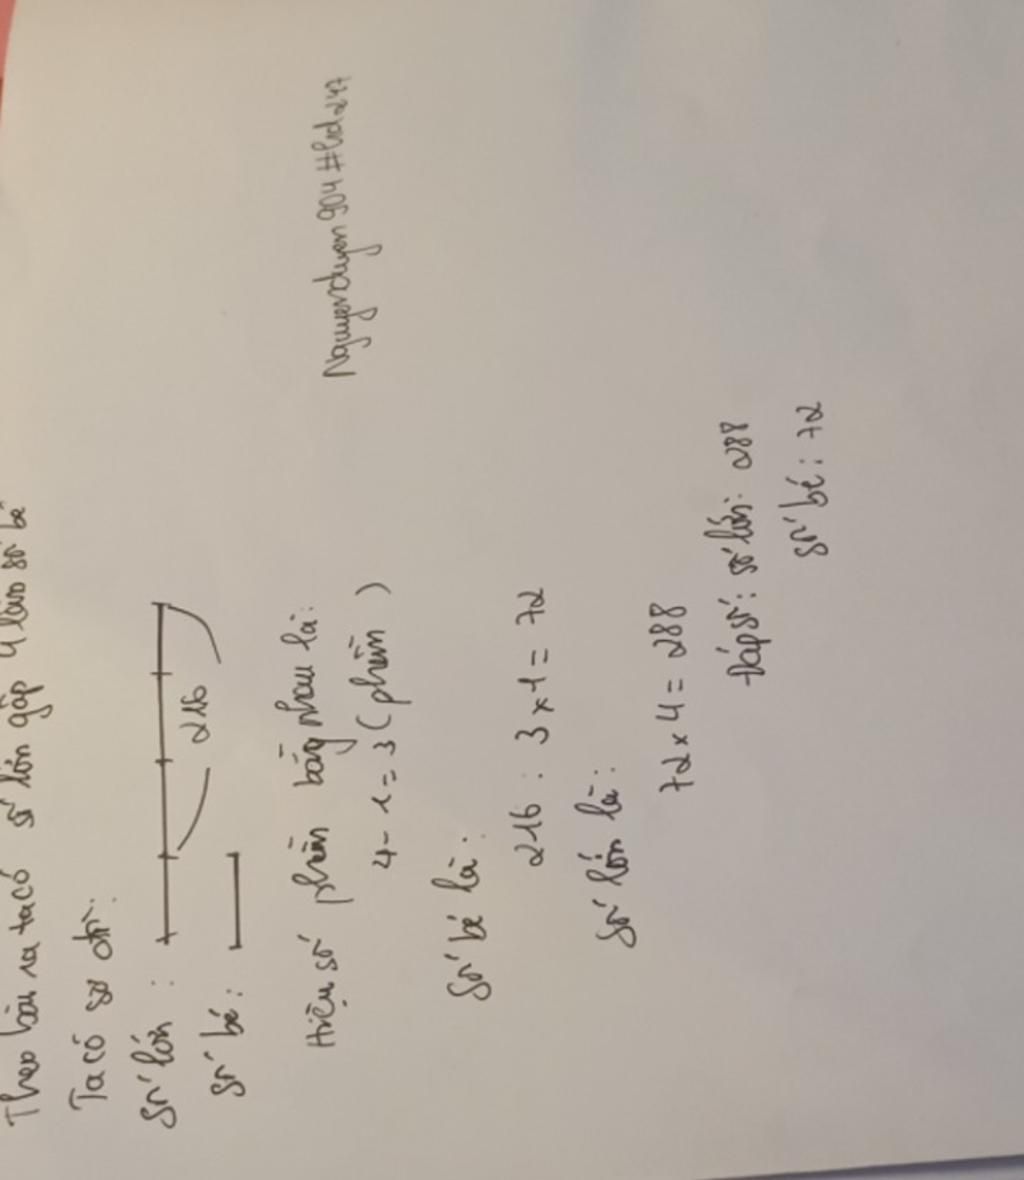 Theo bài ra ta có số lớn gấp 4 lần số bé
Ta có sơ đồ:
Số lớn :
216
Số bé :
Hiệu số phần bằng nhau là:
Nguyenduyen904#hd247
4 - 1 = 3 ( phần )
Số bé là :
216 : 3 x 1 = 72
Số lớn là :
72 x 4 = 288
Đáp số: số lớn: 288
số bé : 72